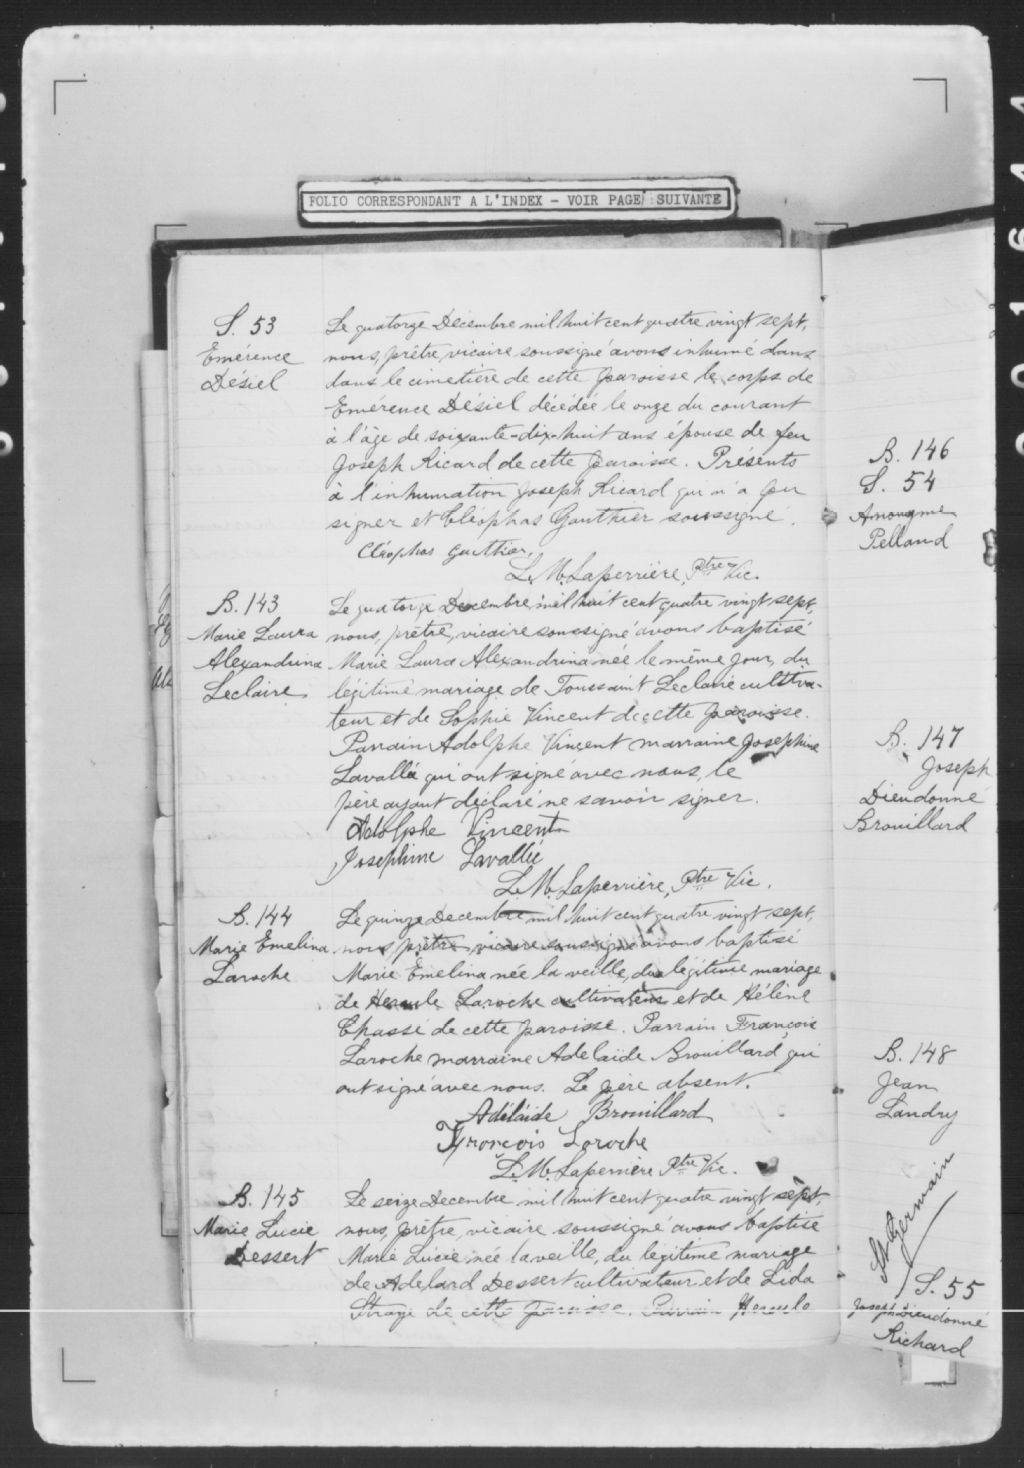 FOLIO CORRESPONDANT A L'INDEX - VOIR PAGE SUIVANTE
S. 53
Emérence
Désiel
Le quatorze Décembre mil huit cent quatre vingt sept,
nous, prêtre, vicaire soussigné avons inhumé dans
dans le cimetière de cette paroisse le corps de
Emérence Désiel décédée le onze du courant
à l'âge de soixante-dix-huit ans épouse de feu
Joseph Ricard de cette paroisse. Présents
à l'inhumation Joseph Ricard qui n'a pu
signer et Cléophas Gauthier soussigné.
Cléophas Gauthier,
L. M. Laperrière, Ptre Vic.
B. 143
Marie Laura
Alexandrina
Leclaire
Le quatorze Decembre, mil huit cent quatre vingt sept,
nous, prêtre, vicaire soussigné avons baptisé
Marie Laura Alexandrina née le même jour, du
légitime mariage de Toussaint Leclaire cultiva-
teur et de Sophie Vincent de cette paroisse.
Parrain Adolphe Vincent marraine Josephine
Lavallée qui ont signé avec nous, le
père ayant déclaré ne savoir signer.
Adolphe Vincent
Josephine Lavallée
L. M. Laperrière, Ptre Vic.
B. 144
Marie Emelina
Laroche
Le quinze Decembre mil huit cent quatre vingt sept,
nous, prêtre, vicaire soussigné avons baptisé
Marie Emelina née la veille, du légitime mariage
de Hercule Laroche cultivateur et de Hélène
Chassé de cette paroisse. Parrain François
Laroche marraine Adelaïde Brouillard qui
ont signé avec nous. Le père absent.
Adélaide Brouillard
François Laroche
L. M. Laperrière Ptre Vic.
B. 145
Marie Lucie
Dessert
Le seize Decembre mil huit cent quatre vingt sept,
nous, prêtre, vicaire soussigné avons baptisé
Marie Lucie née la veille, du légitime mariage
de Adelard Dessert cultivateur et de Lida
de cette paroisse. Parrain Hercule
B. 146
S. 54
Anonyme
Pelland
B. 147
Joseph
Dieudonné
Brouillard
B. 148
Jean
Landry
St Germain
S. 55
Joseph Dieudonné
Richard